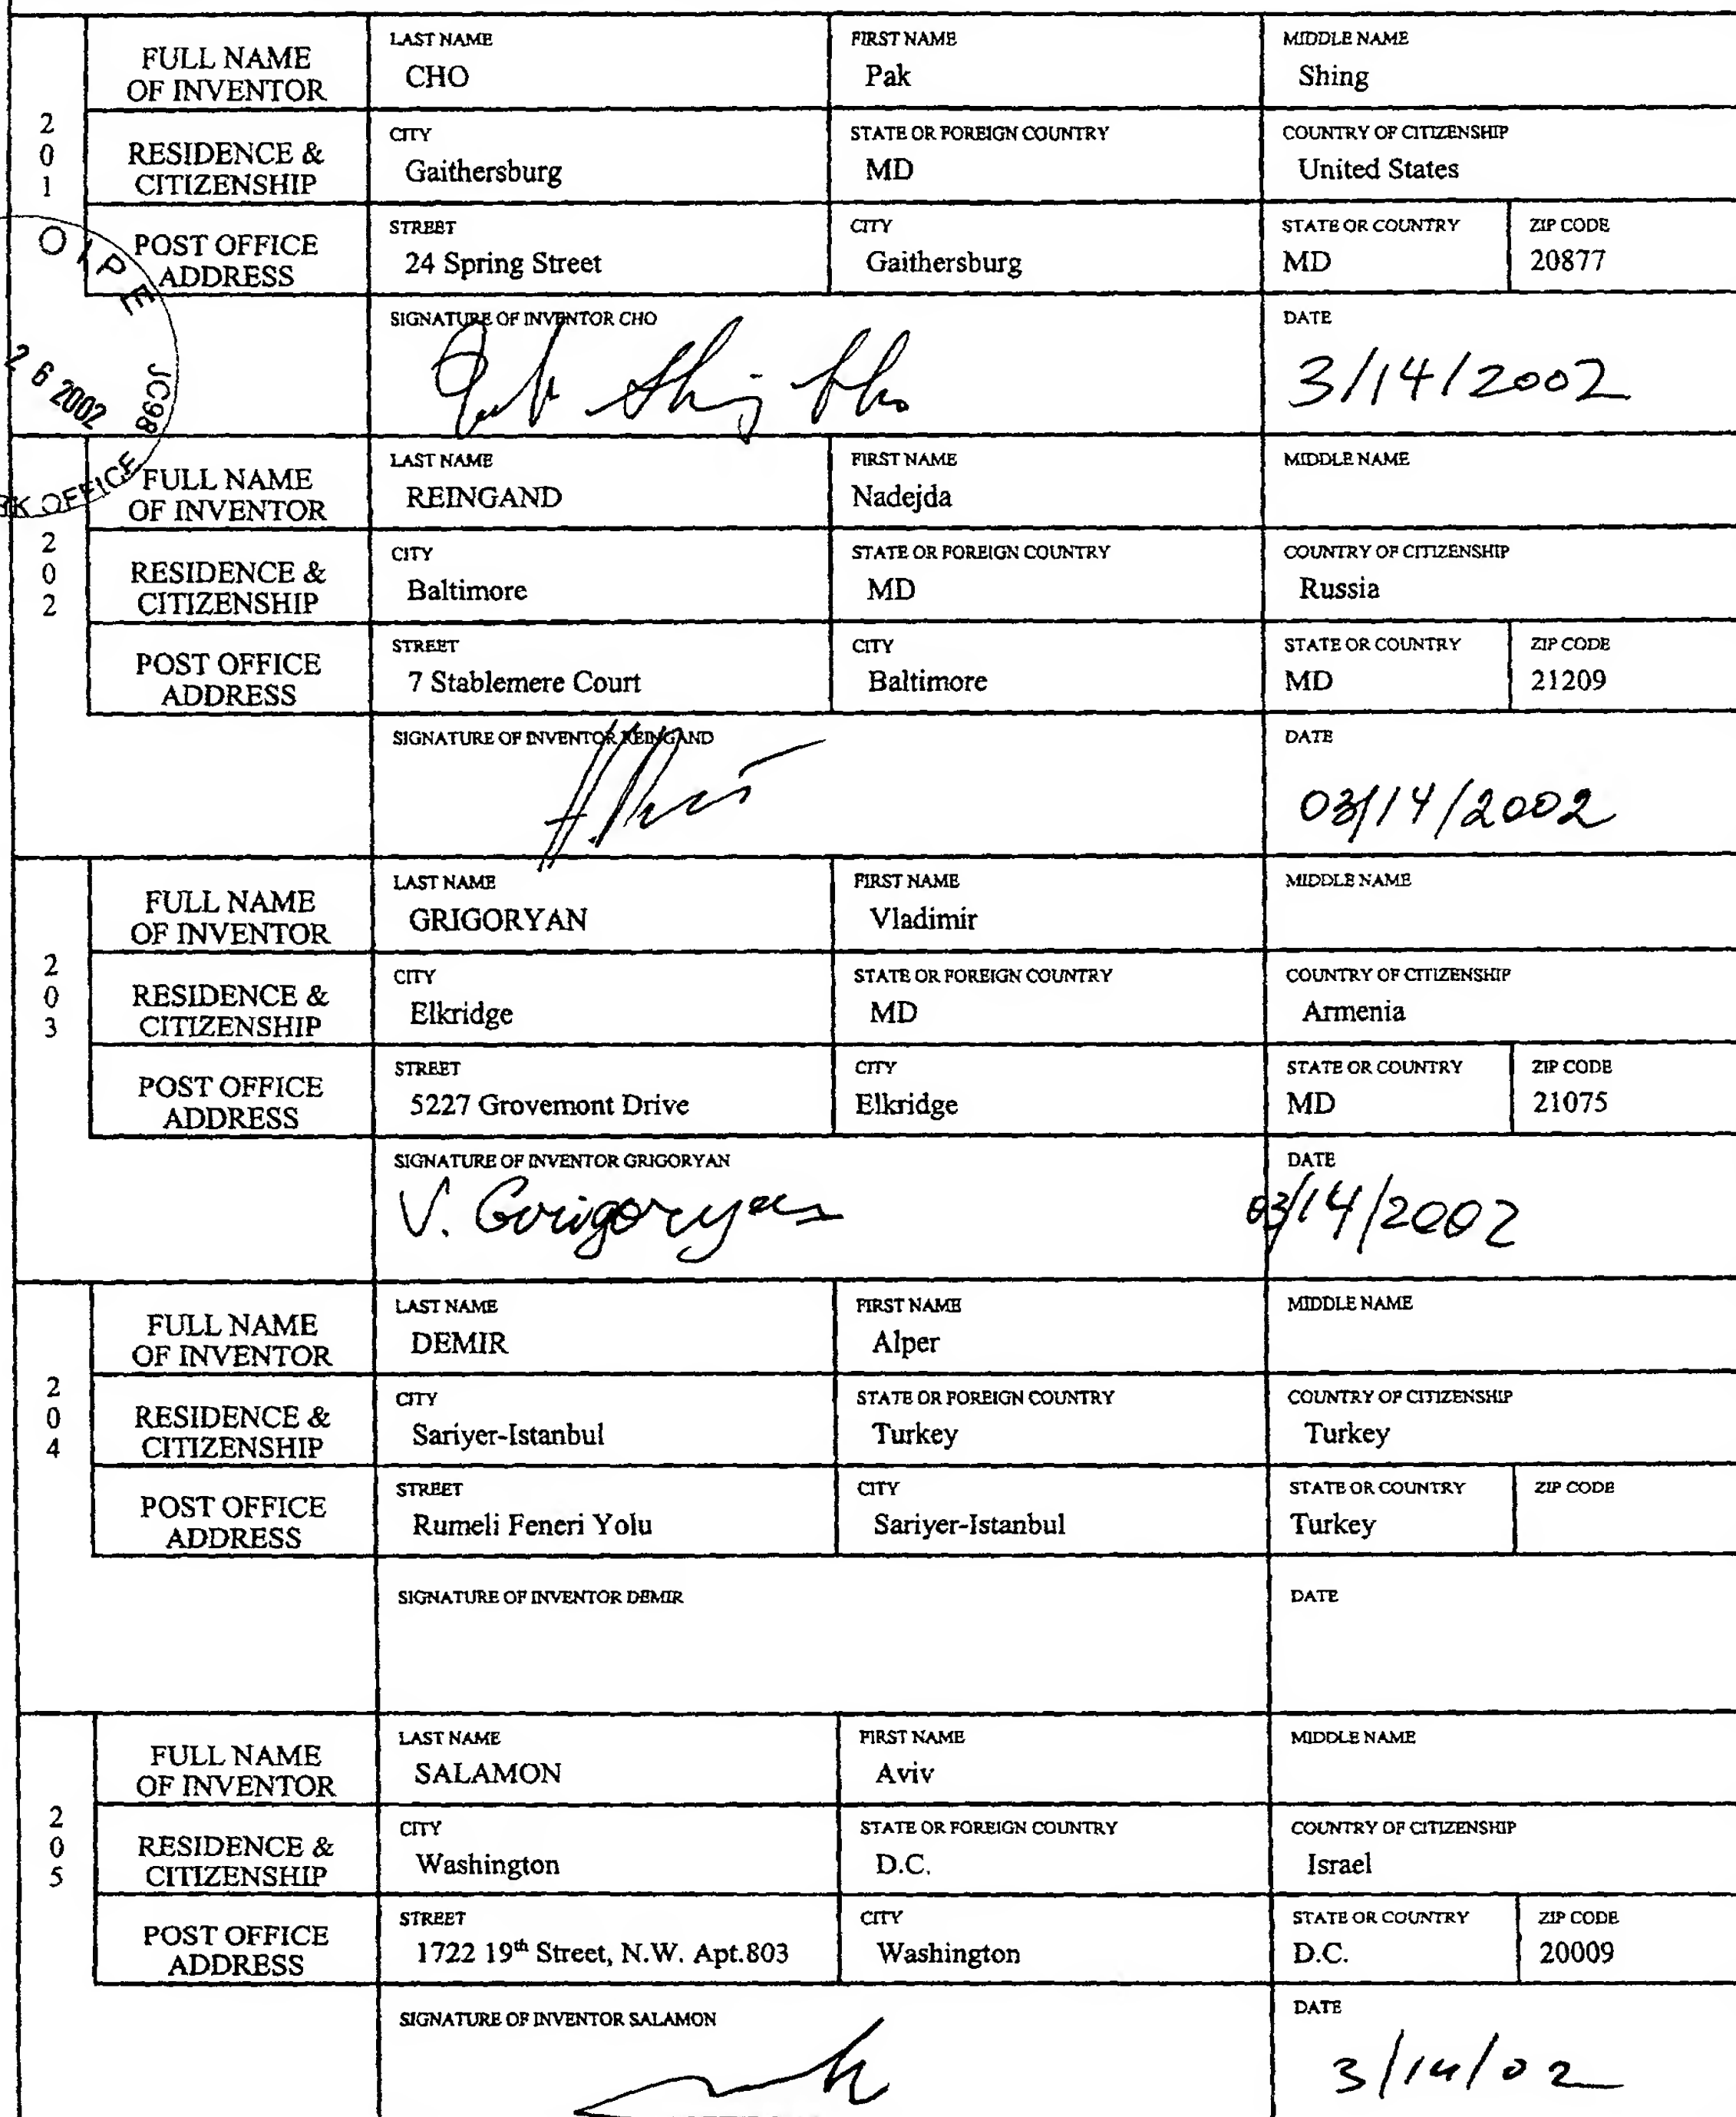 201
FULL NAME OF INVENTOR
LAST NAME
CHO
FIRST NAME
Pak
MIDDLE NAME
Shing
RESIDENCE & CITIZENSHIP
CITY
Gaithersburg
STATE OR FOREIGN COUNTRY
MD
COUNTRY OF CITIZENSHIP
United States
POST OFFICE ADDRESS
STREET
24 Spring Street
CITY
Gaithersburg
STATE OR COUNTRY
MD
ZIP CODE
20877
OIPE
26 2002
JC98
OFFICE
SIGNATURE OF INVENTOR CHO
Pak Shing Cho
DATE
3/14/2002
202
FULL NAME OF INVENTOR
LAST NAME
REINGAND
FIRST NAME
Nadejda
MIDDLE NAME
RESIDENCE & CITIZENSHIP
CITY
Baltimore
STATE OR FOREIGN COUNTRY
MD
COUNTRY OF CITIZENSHIP
Russia
POST OFFICE ADDRESS
STREET
7 Stablemere Court
CITY
Baltimore
STATE OR COUNTRY
MD
ZIP CODE
21209
SIGNATURE OF INVENTOR REINGAND
DATE
03/14/2002
203
FULL NAME OF INVENTOR
LAST NAME
GRIGORYAN
FIRST NAME
Vladimir
MIDDLE NAME
RESIDENCE & CITIZENSHIP
CITY
Elkridge
STATE OR FOREIGN COUNTRY
MD
COUNTRY OF CITIZENSHIP
Armenia
POST OFFICE ADDRESS
STREET
5227 Grovemont Drive
CITY
Elkridge
STATE OR COUNTRY
MD
ZIP CODE
21075
SIGNATURE OF INVENTOR GRIGORYAN
V. Grigoryan
DATE
03/14/2002
204
FULL NAME OF INVENTOR
LAST NAME
DEMIR
FIRST NAME
Alper
MIDDLE NAME
RESIDENCE & CITIZENSHIP
CITY
Sariyer-Istanbul
STATE OR FOREIGN COUNTRY
Turkey
COUNTRY OF CITIZENSHIP
Turkey
POST OFFICE ADDRESS
STREET
Rumeli Feneri Yolu
CITY
Sariyer-Istanbul
STATE OR COUNTRY
Turkey
ZIP CODE
SIGNATURE OF INVENTOR DEMIR
DATE
205
FULL NAME OF INVENTOR
LAST NAME
SALAMON
FIRST NAME
Aviv
MIDDLE NAME
RESIDENCE & CITIZENSHIP
CITY
Washington
STATE OR FOREIGN COUNTRY
D.C.
COUNTRY OF CITIZENSHIP
Israel
POST OFFICE ADDRESS
STREET
1722 19th Street, N.W. Apt.803
CITY
Washington
STATE OR COUNTRY
D.C.
ZIP CODE
20009
SIGNATURE OF INVENTOR SALAMON
DATE
3/14/02